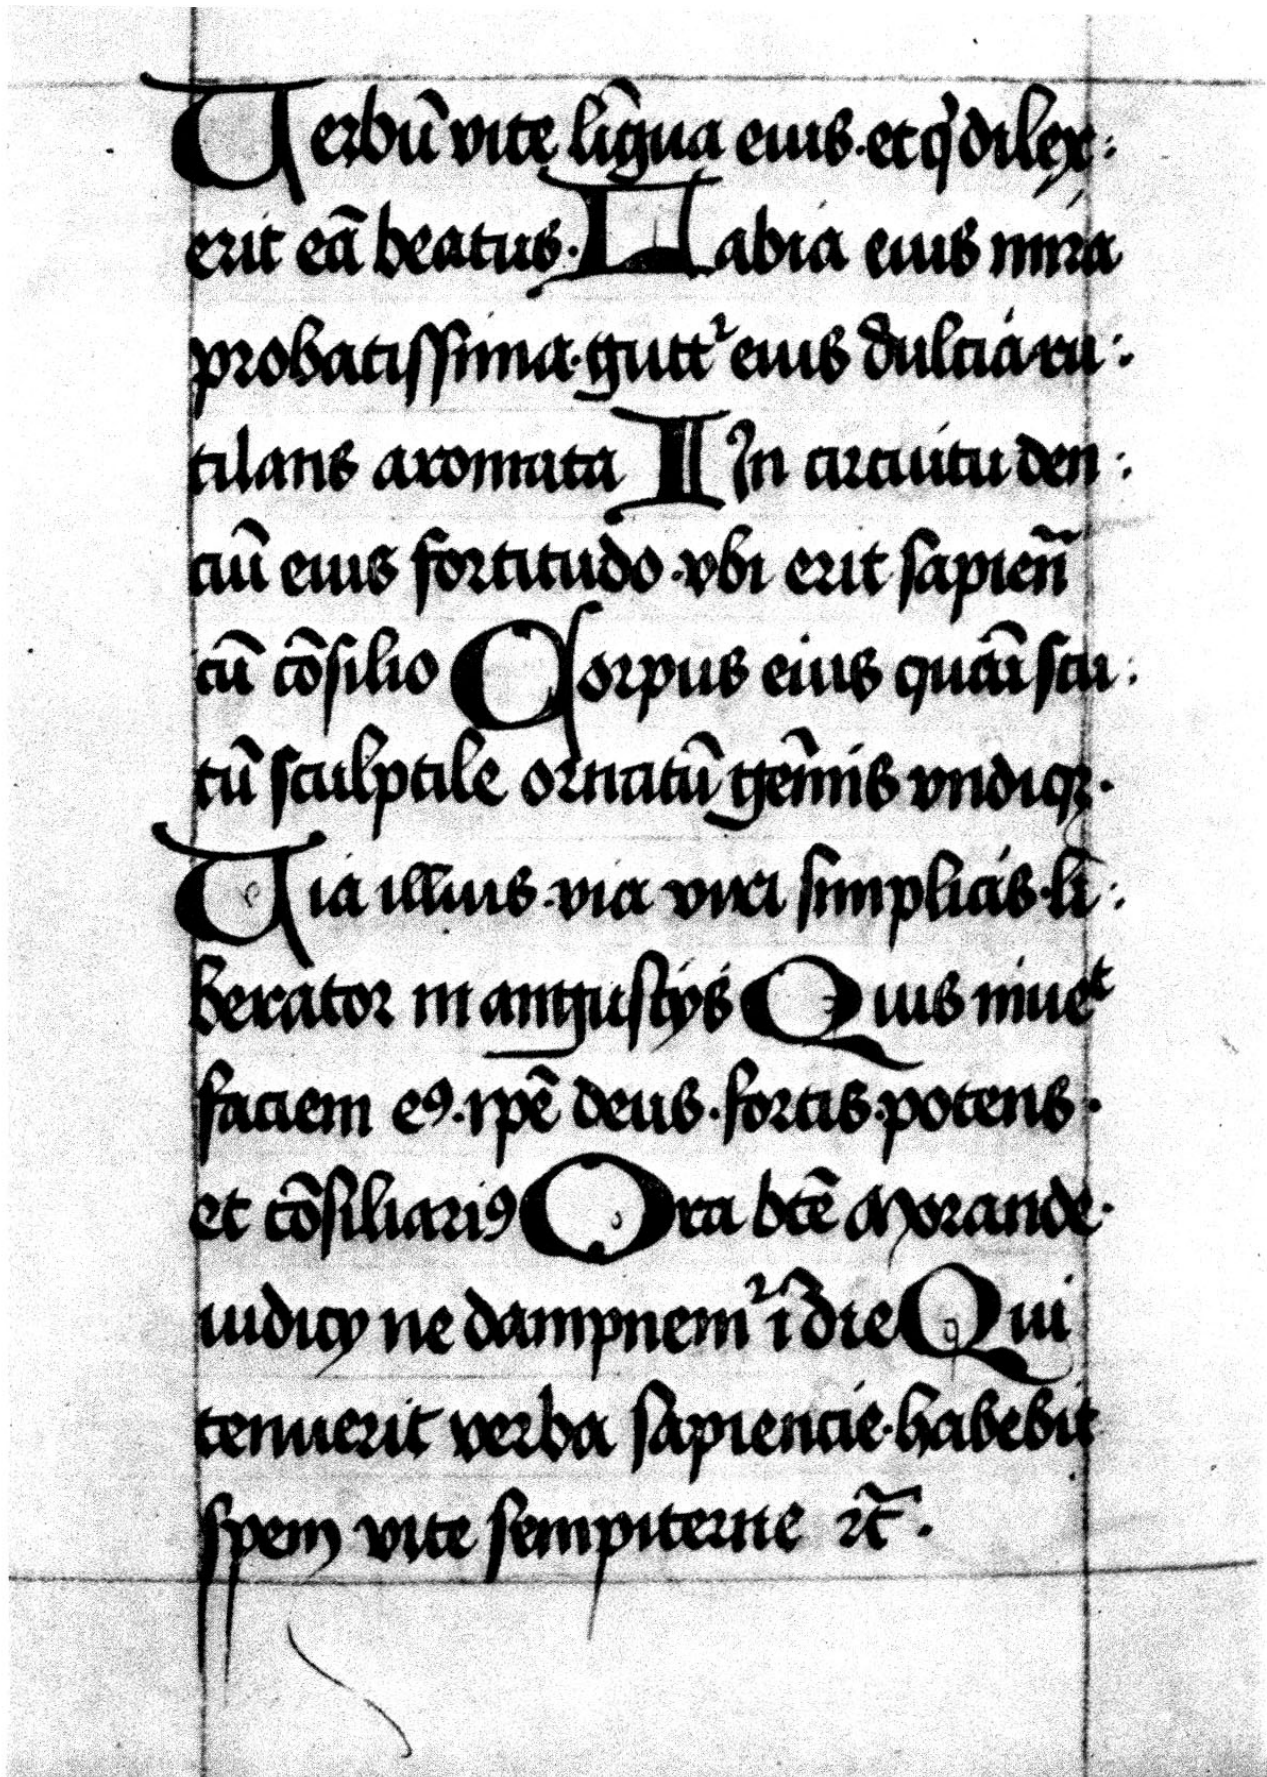 Uerbū vite līgua eius. et q̇ dilex:
erit eā beatus. Labia eius mira
probatissima. gutt᷑ eius dulcia. ru:
tilans aromata I In circuitu den:
ciū eius fortitudo. vbi erit sapien̄
cū cōsilio Corpus eius quasi scu:
tū sculptile ornatū gēmis vndiqꝫ.
Uia illius. via viri simplicis. li:
berator in angustijs Quis inueᵗ
faciem eꝰ. ipē deus. fortis. potens.
et cōsiliariꝰ Ora btē Morande.
iudicij ne dampnem᷑ ī die Qui
tenuerit verba sapiencie. habebit
spem vite sempiterne ⁊c̄.